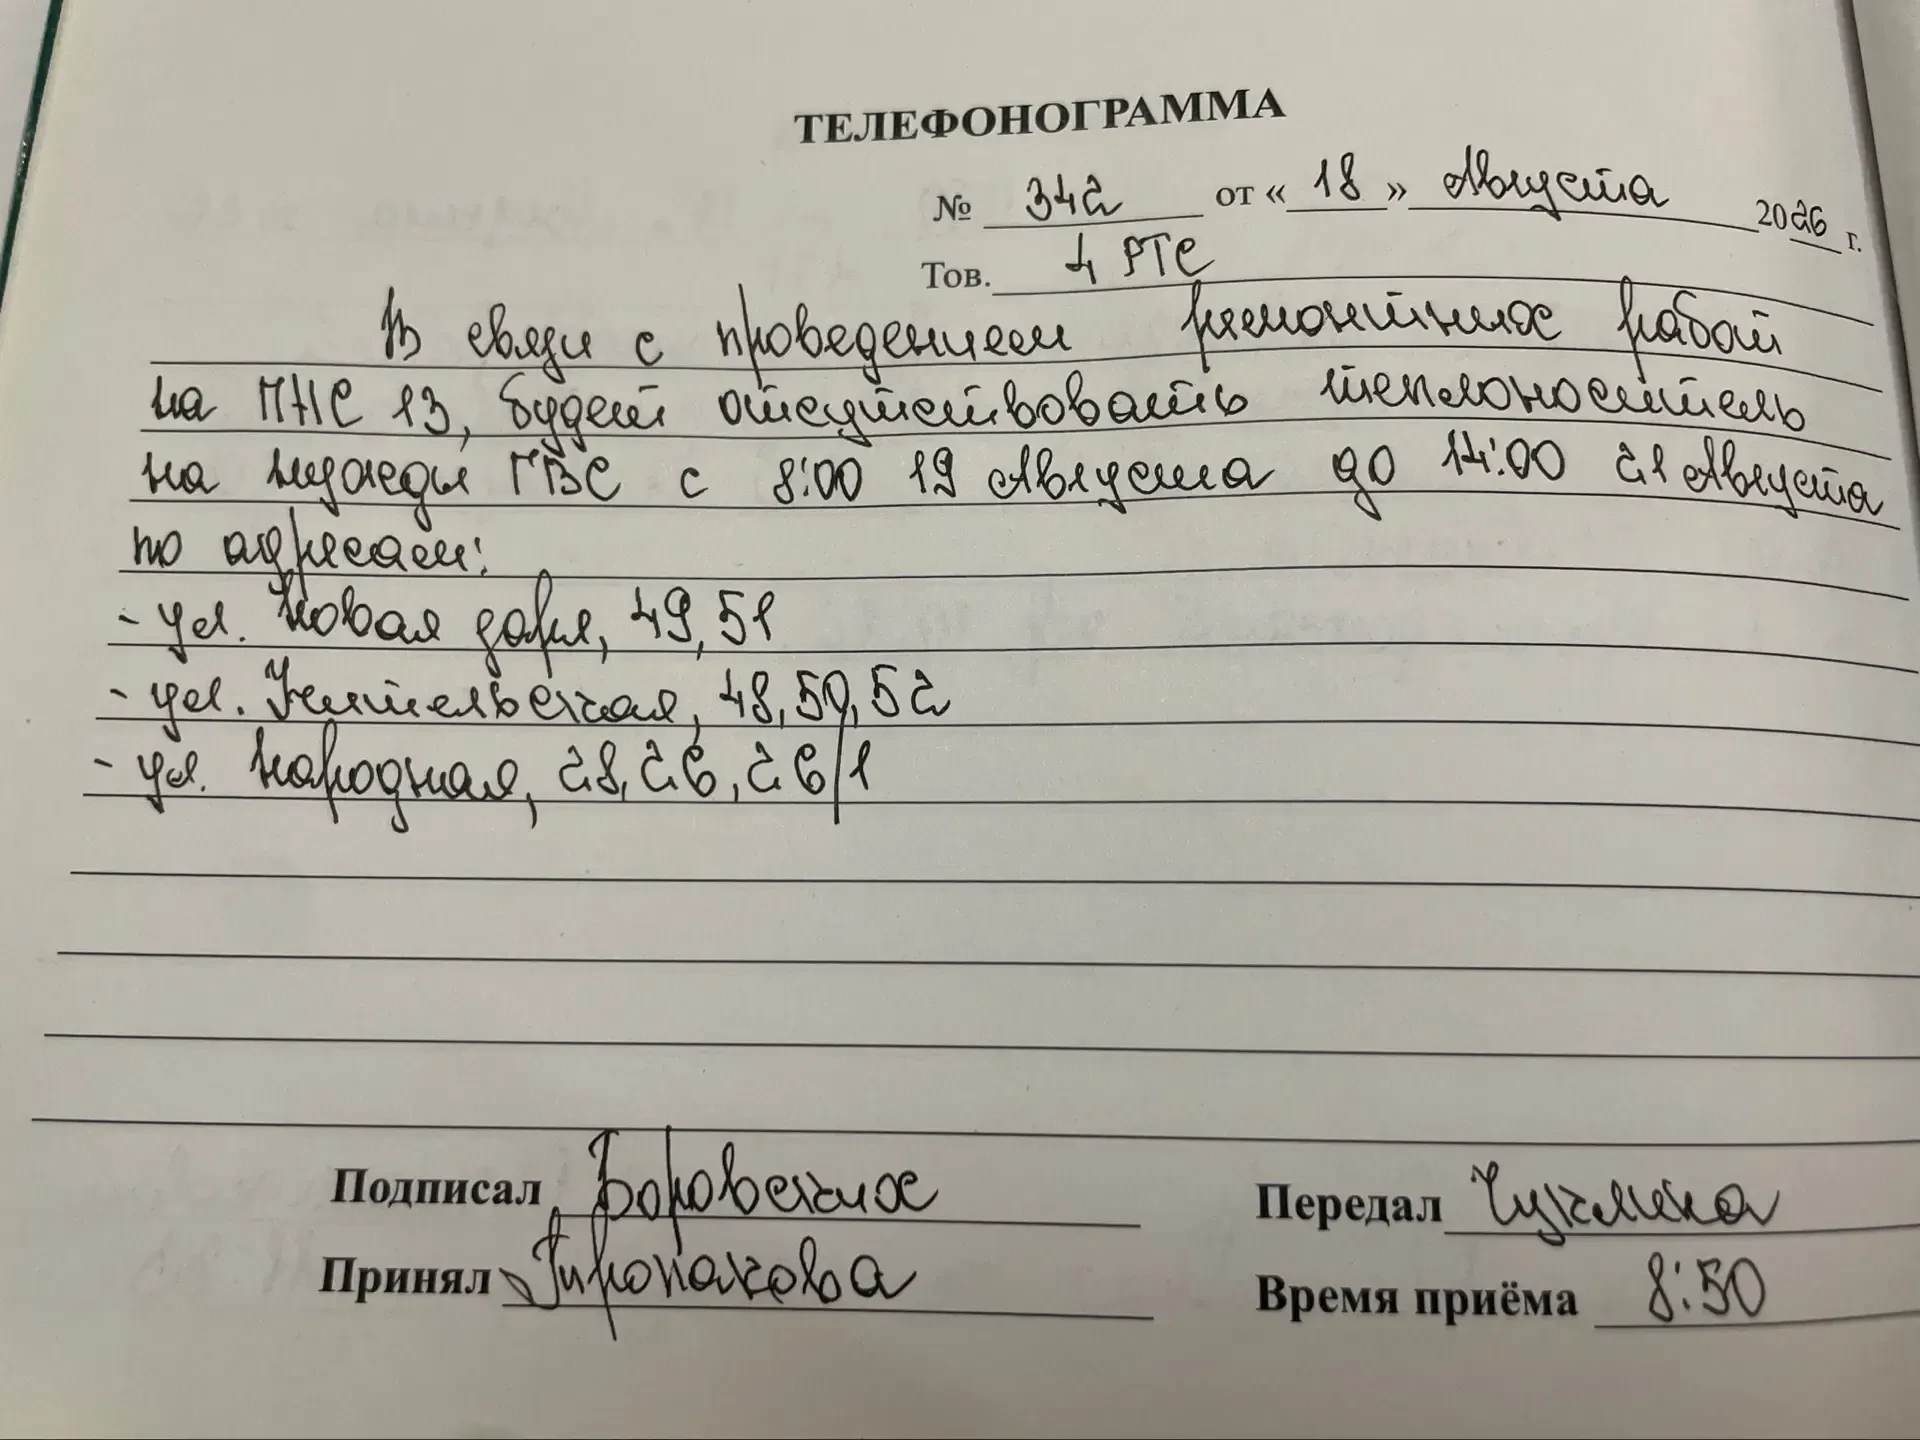 ТЕЛЕФОНОГРАММА
№ 342 от « 18 » Августа 2026 г.
Тов. 4 РТС
В связи с проведением ремонтных работ
на ПНС 13, будет отсутствовать теплоноситель
на нужды ГВС с 8:00 19 Августа до 14:00 21 Августа
по адресам:
- ул. Новая заря, 49, 51
- ул. Учительская, 48, 50, 52
- ул. Народная, 28, 26, 26/1
Подписал Боровских Передал Чукмена
Принял Пиропакова Время приёма 8:50